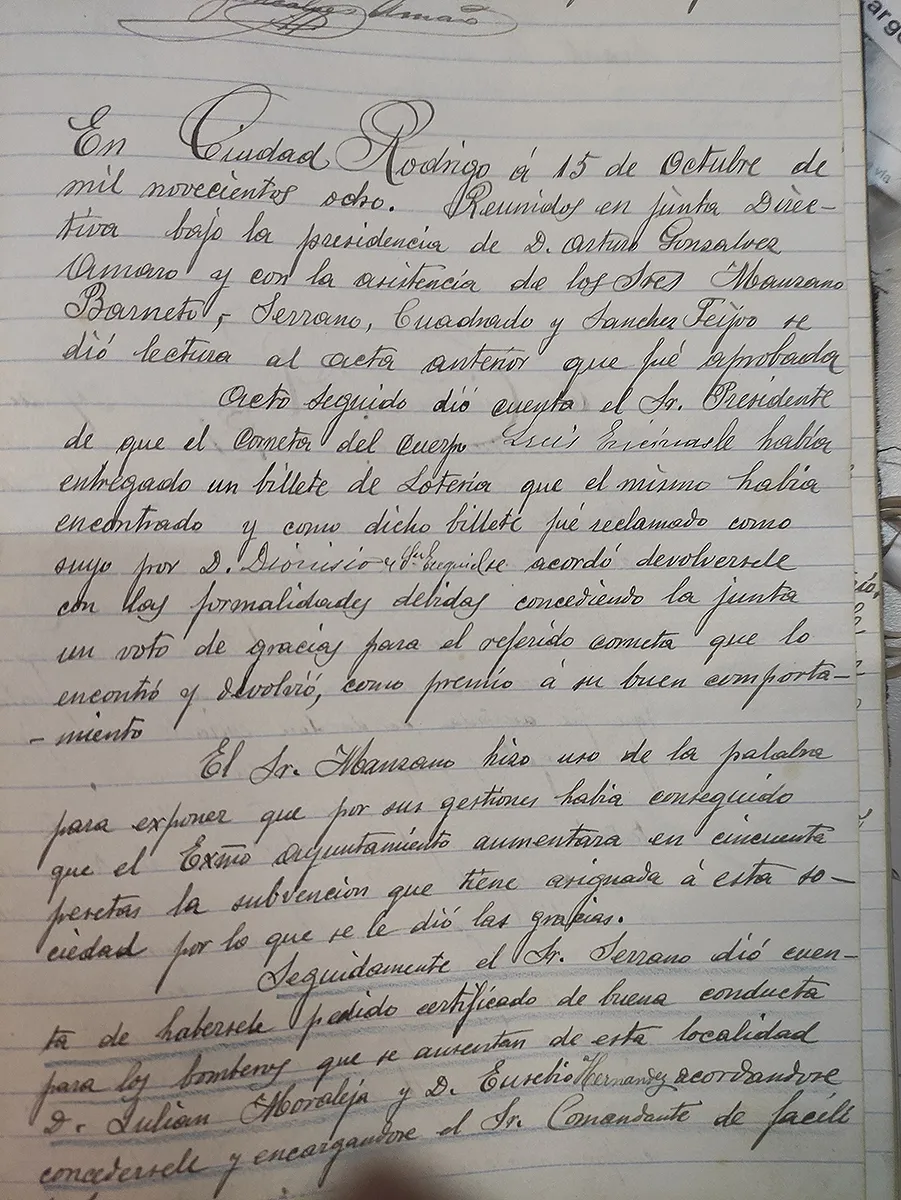 Amaro
En Ciudad Rodrigo á 15 de Octubre de
mil novecientos ocho. Reunidos en junta Direc-
tiva bajo la presidencia de D. Arturo Gonzalvez
Amaro y con la asistencia de los Sres Manzano
Barneto, Serrano, Cuadrado y Sanchez Feijoo se
dió lectura al acta anterior que fué aprobada
Acto seguido dió cuenta el Sr. Presidente
de que el corneta del cuerpo Luis había
entregado un billete de Lotería que el mismo había
encontrado y como dicho billete fué reclamado como
suyo por D. Dionisio se acordó devolversele
con las formalidades debidas concediendo la junta
un voto de gracias para el referido corneta que lo
encontró y devolvió, como premio á su buen comporta-
-miento
El Sr. Manzano hizo uso de la palabra
para exponer que por sus gestiones había conseguido
que el Exmo ayuntamiento aumentara en cincuenta
pesetas la subvencion que tiene asignada á esta so-
ciedad por lo que se le dió las gracias.
Seguidamente el Sr. Serrano dió cuen-
ta de habersele pedido certificado de buena conducta
para los bomberos que se ausentan de esta localidad
D. Julian Moraleja y D. Eusebio Hernandez acordandose
concedersele y encargandose el Sr. Comandante de facili